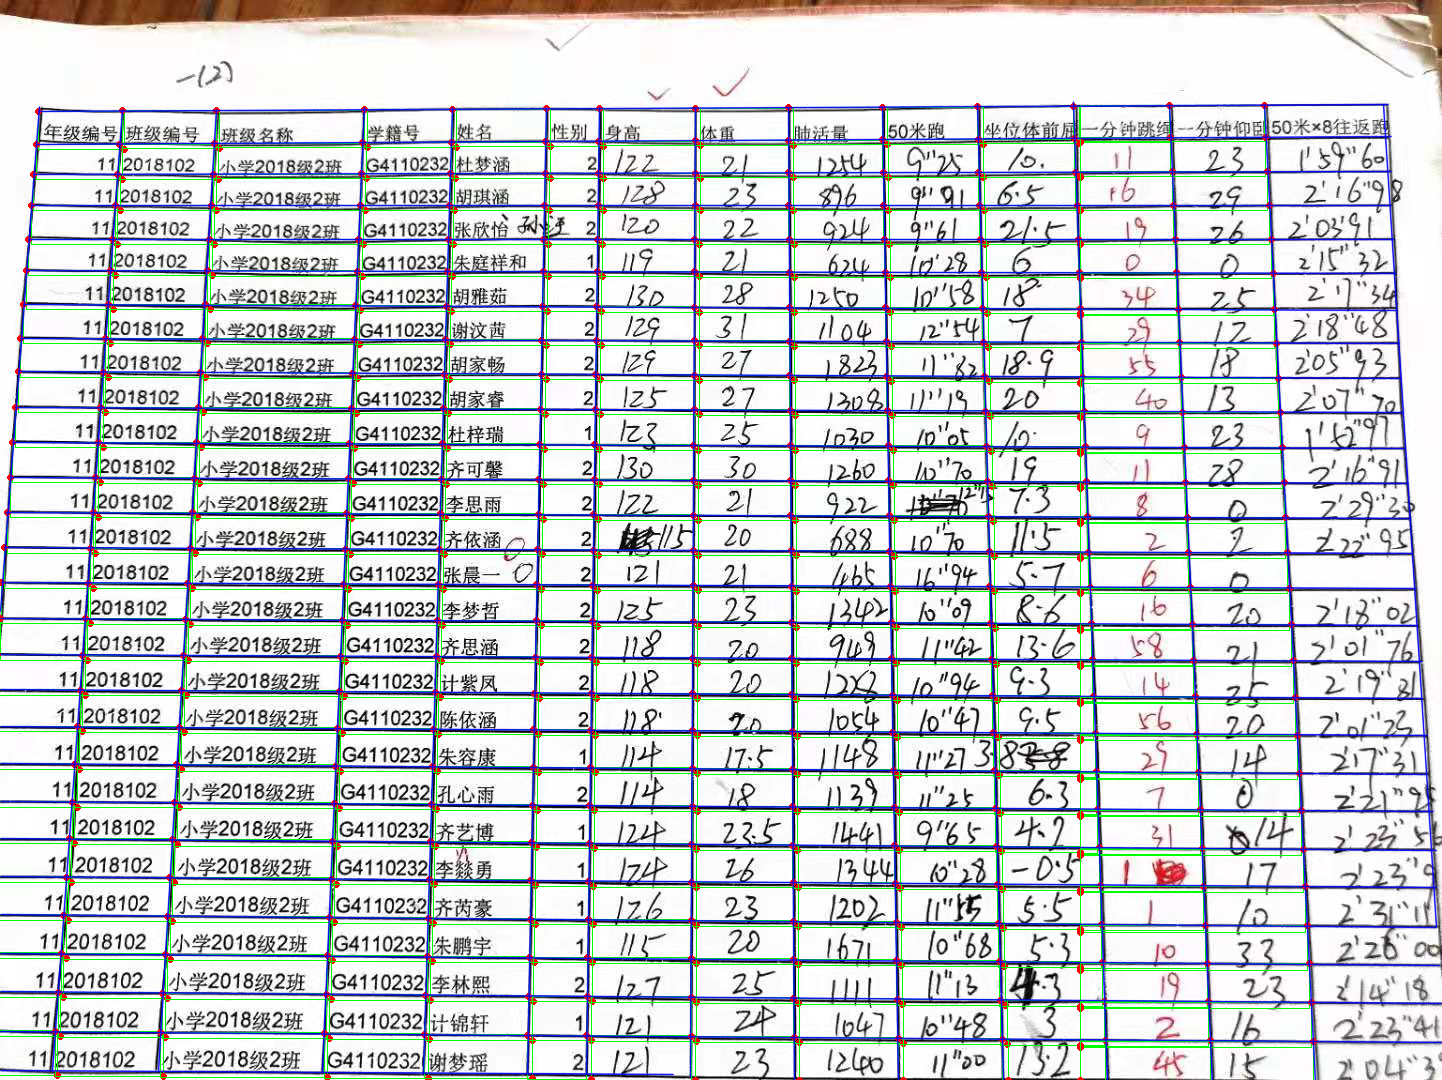 一(2)
年级编号 班级编号 班级名称 学籍号 姓名 性别 身高 体重 肺活量 50米跑 坐位体前屈 一分钟跳绳 一分钟仰卧 50米×8往返跑
11 2018102 小学2018级2班 G4110232 杜梦涵 2 122 21 1254 9"25 10. 11 23 1'59"60
11 2018102 小学2018级2班 G4110232 胡琪涵 2 128 23 896 9"91 6.5 16 29 2'16"98
11 2018102 小学2018级2班 G4110232 张欣怡 2 120 22 924 9"61 21.5 19 26 2'03"91
11 2018102 小学2018级2班 G4110232 朱庭祥和 1 119 21 624 10"28 6 0 0 2'15"32
11 2018102 小学2018级2班 G4110232 胡雅茹 2 130 28 1250 10"58 18 34 25 2'17"34
11 2018102 小学2018级2班 G4110232 谢汶茜 2 129 31 1104 12"54 7 29 12 2'18"48
11 2018102 小学2018级2班 G4110232 胡家畅 2 129 27 1823 11"82 18.9 55 18 2'05"93
11 2018102 小学2018级2班 G4110232 胡家睿 2 125 27 1308 11"19 20 40 13 2'07"70
11 2018102 小学2018级2班 G4110232 杜梓瑞 1 123 25 1030 10"05 10. 9 23 1'52"97
11 2018102 小学2018级2班 G4110232 齐可馨 2 130 30 1260 10"70 19 11 28 2'16"91
11 2018102 小学2018级2班 G4110232 李思雨 2 122 21 922 7.3 8 0 2'29"30
11 2018102 小学2018级2班 G4110232 齐依涵 2 115 20 688 10"70 11.5 2 2 2'22"95
11 2018102 小学2018级2班 G4110232 张晨一 2 121 21 1465 16"94 5.7 6 0
11 2018102 小学2018级2班 G4110232 李梦哲 2 125 23 1342 10"09 8.6 16 20 2'18"02
11 2018102 小学2018级2班 G4110232 齐思涵 2 118 20 949 11"42 13.6 58 21 2'01"76
11 2018102 小学2018级2班 G4110232 计紫凤 2 118 20 10"94 9.3 14 25 2'19"31
11 2018102 小学2018级2班 G4110232 陈依涵 2 118 20 1054 10"47 9.5 56 20 2'01"23
11 2018102 小学2018级2班 G4110232 朱容康 1 114 17.5 1148 11"27 3.8 29 14 2'17"31
11 2018102 小学2018级2班 G4110232 孔心雨 2 114 18 1139 11"25 6.3 7 0 2'21"95
11 2018102 小学2018级2班 G4110232 齐艺博 1 124 23.5 1441 9"65 4.2 31 14 2'23"56
11 2018102 小学2018级2班 G4110232 李燚勇 1 124 26 1344 10"28 -0.5 1 17 2'23"9
11 2018102 小学2018级2班 G4110232 齐芮豪 1 126 23 1202 11"55 5.5 1 10 2'31"11
11 2018102 小学2018级2班 G4110232 朱鹏宇 1 115 20 1671 10"68 5.3 10 33 2'26"00
11 2018102 小学2018级2班 G4110232 李林熙 2 127 25 1111 11"13 4.3 19 23 2'14"18
11 2018102 小学2018级2班 G4110232 计锦轩 1 121 24 1047 10"48 3 2 16 2'23"41
11 2018102 小学2018级2班 G4110232 谢梦瑶 2 121 23 1240 11"00 13.2 45 15 2'04"3